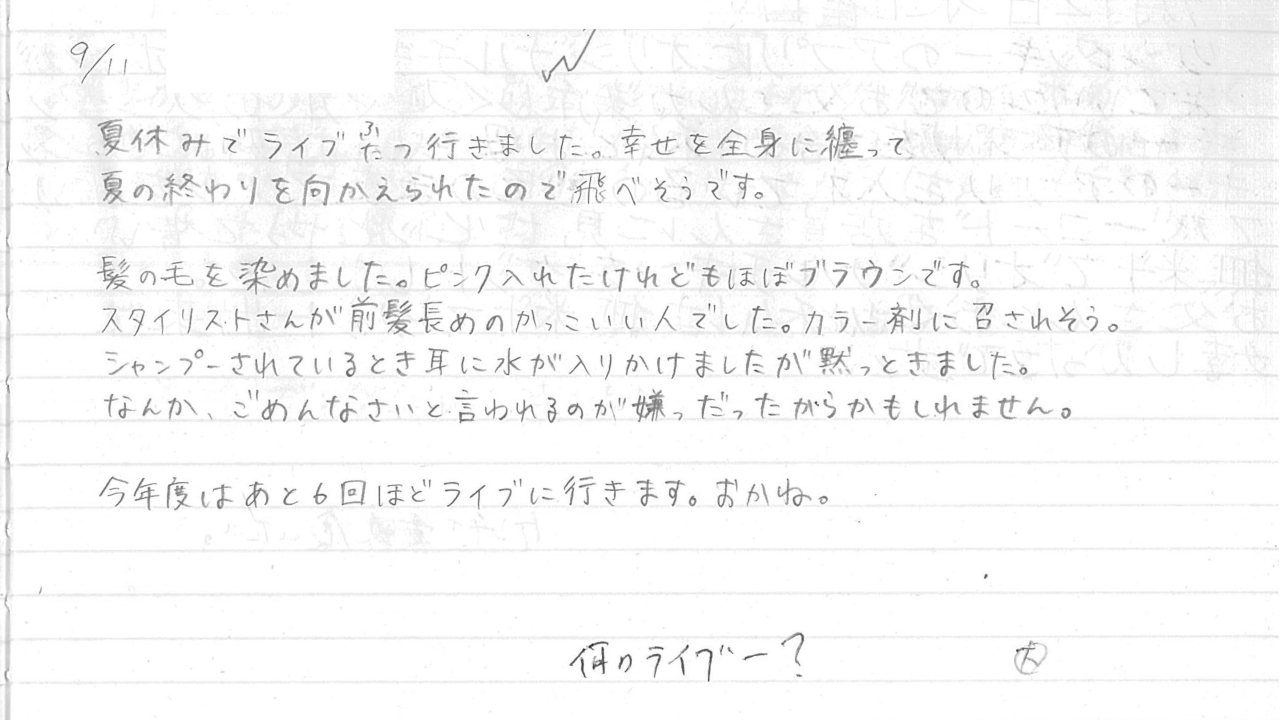 9/11
夏休みでライブふたつ行きました。幸せを全身に纏って
夏の終わりを向かえられたので飛べそうです。
髪の毛を染めました。ピンク入れたけれどもほぼブラウンです。
スタイリストさんが前髪長めのかっこいい人でした。カラー剤に召されそう。
シャンプーされているとき耳に水が入りかけましたが黙っときました。
なんか、ごめんなさいと言われるのが嫌っだったがらかもしれません。
今年度はあと6回ほどライブに行きます。おかね。
何のライブー?
大